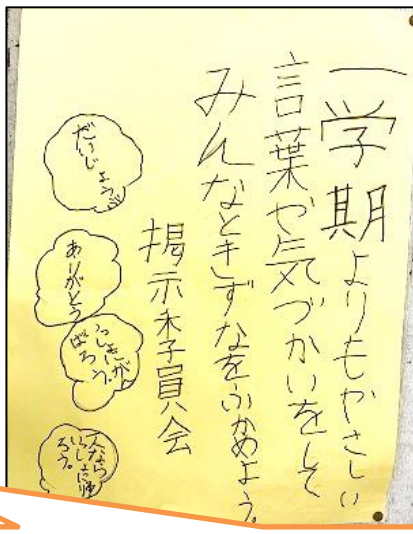 一学期よりもやさしい
言葉や気づかいをして
みんなときずなをふかめよう。
掲示委員会
だいじょうぶ
ありがとう
いっしょにがん
ばろう。
一人なら
いっしょに帰
ろう。